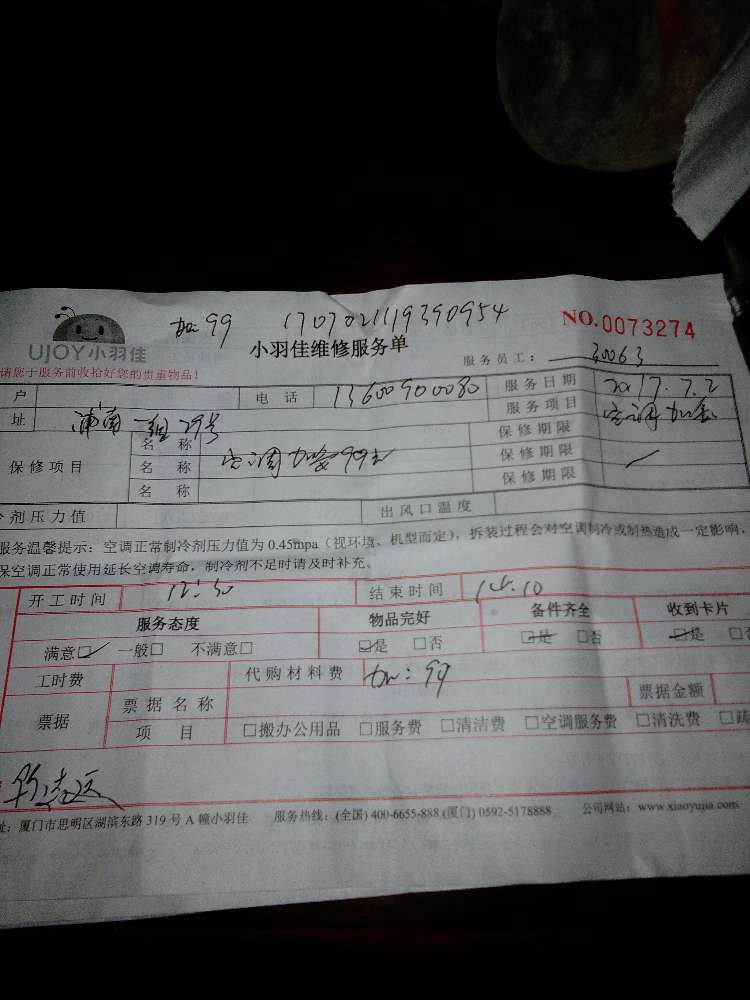 加:99 1707021119390954
NO.0073274
UJOY小羽佳
小羽佳维修服务单
服务员工: 30063
请您于服务前收拾好您的贵重物品!
户 电话 13600900080 服务日期 2017.7.2
址 浦南一组29号 服务项目 空调加氨
名称 保修期限
保修项目 名称 空调加氨99元 保修期限
名称 保修期限
冷剂压力值 出风口温度
服务温馨提示:空调正常制冷剂压力值为0.45mpa(视环境、机型而定),拆装过程会对空调制冷或制热造成一定影响,
保空调正常使用延长空调寿命,制冷剂不足时请及时补充。
开工时间 12:30 结束时间 14.10
服务态度 物品完好 备件齐全 收到卡片
满意□ 一般□ 不满意□ □是 □否 □是 □否 □是 □
工时费 代购材料费 加:99
票据 票据名称 票据金额
项目 □搬办公用品 □服务费 □清洁费 □空调服务费 □清洗费 □疏
址:厦门市思明区湖滨东路319号A幢小羽佳 服务热线:(全国)400-6655-888(厦门)0592-5178888 公司网站:www.xiaoyujia.com